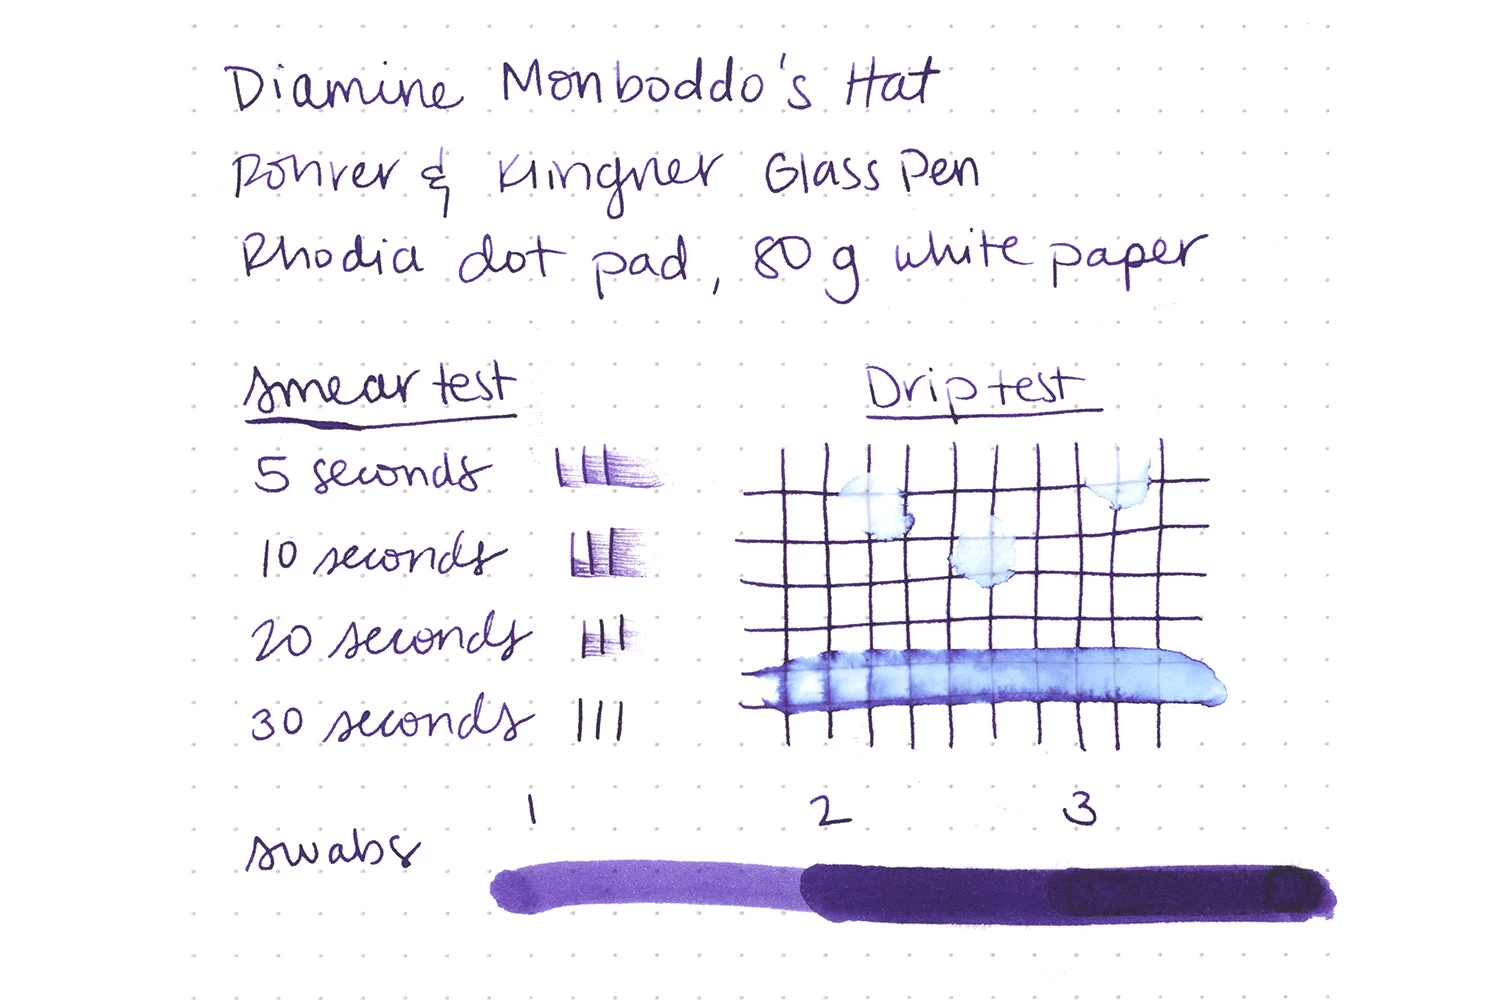 Diamine Monboddo's Hat
Rohrer & Klingner Glass Pen
Rhodia dot pad, 80 g white paper
Smear test
5 seconds
10 seconds
20 seconds
30 seconds
Drip test
1 2 3
swabs